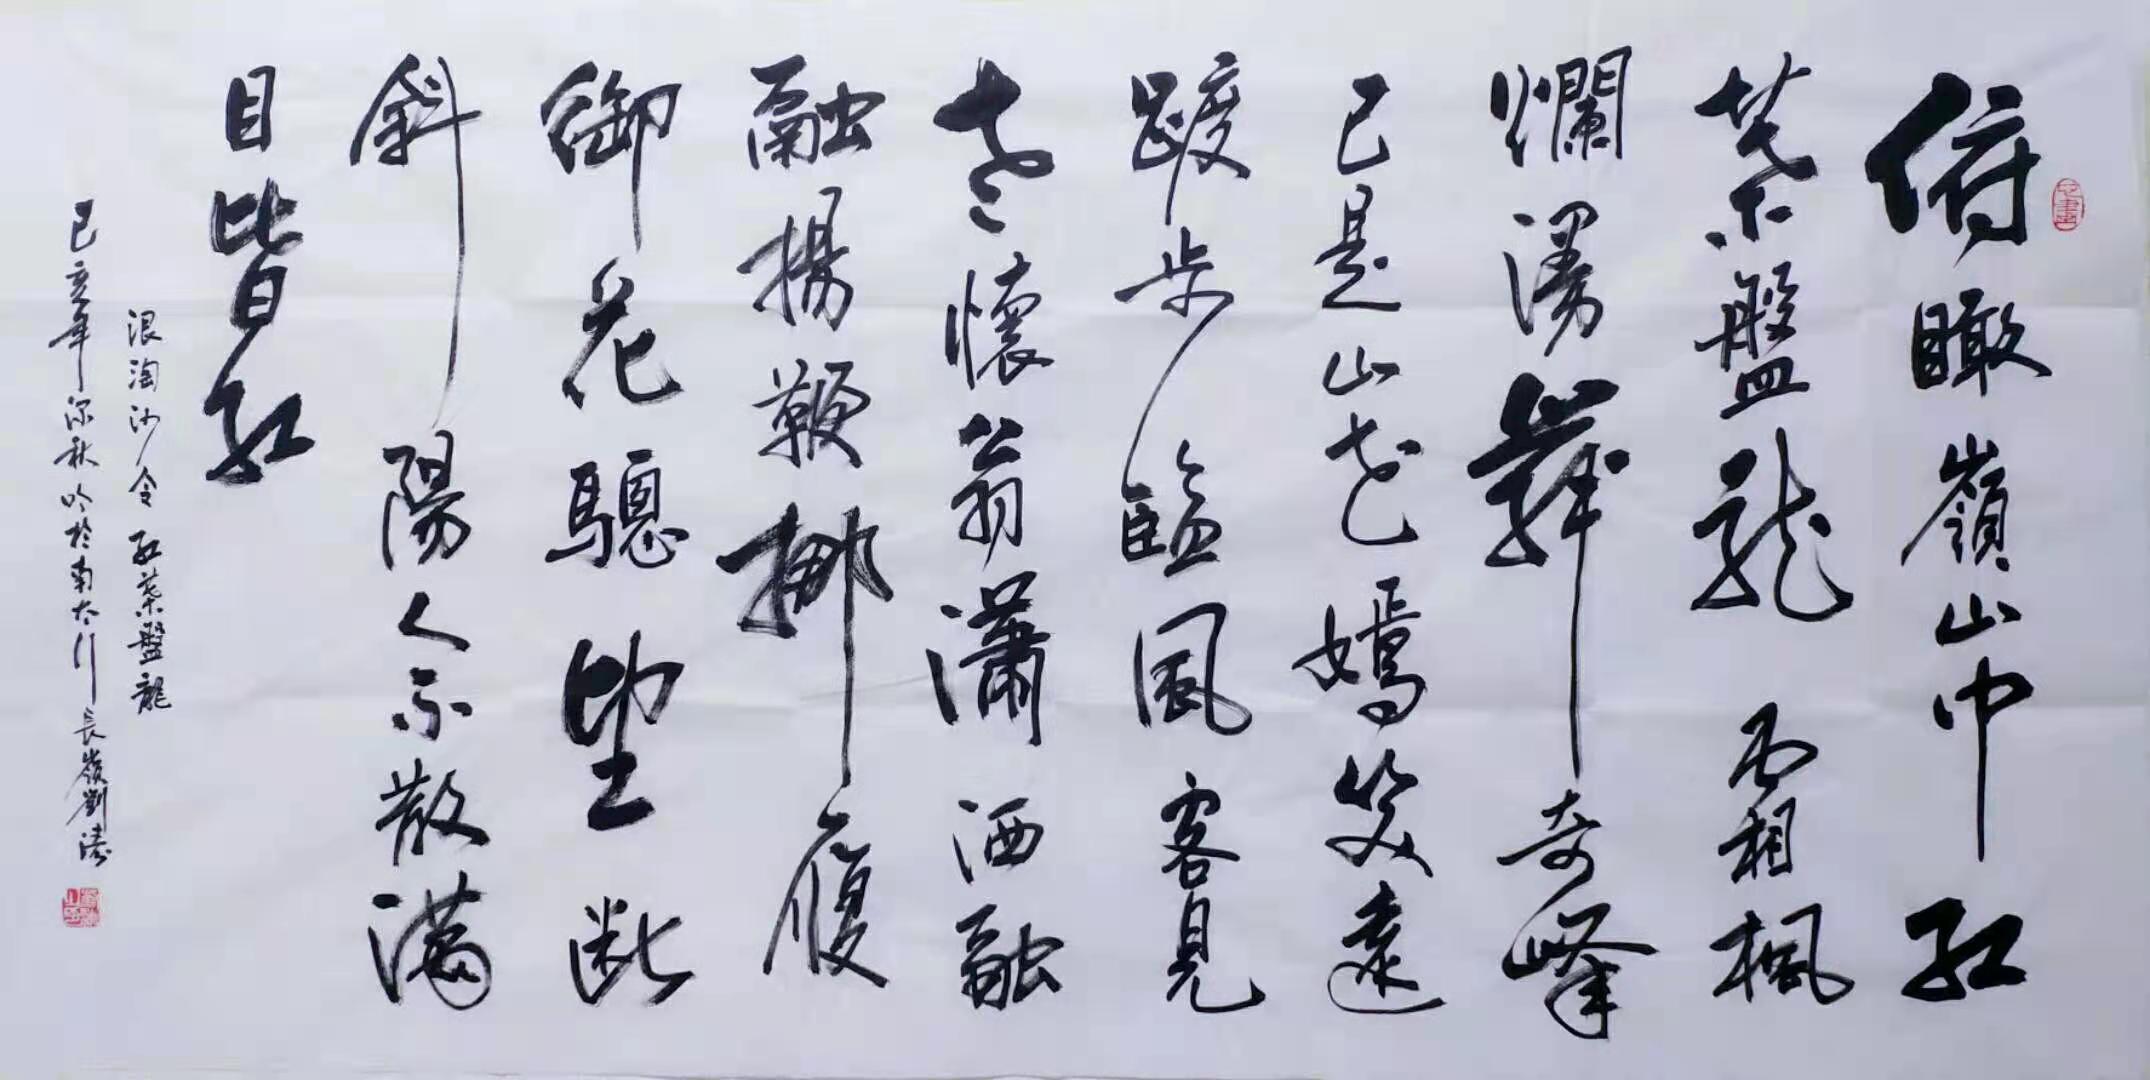 俯瞰嶺山中紅
葉盤龍 霜楓
爛漫舞奇峰
已是山花嫣笑遠
踱步臨風 客見
老懷翁瀟洒融
融揚鞭挪履
御花驄望斷
斜陽人不散滿
目皆紅
浪淘沙令 紅葉盤龍
己亥年深秋吟於南太行 長嶺劉濤